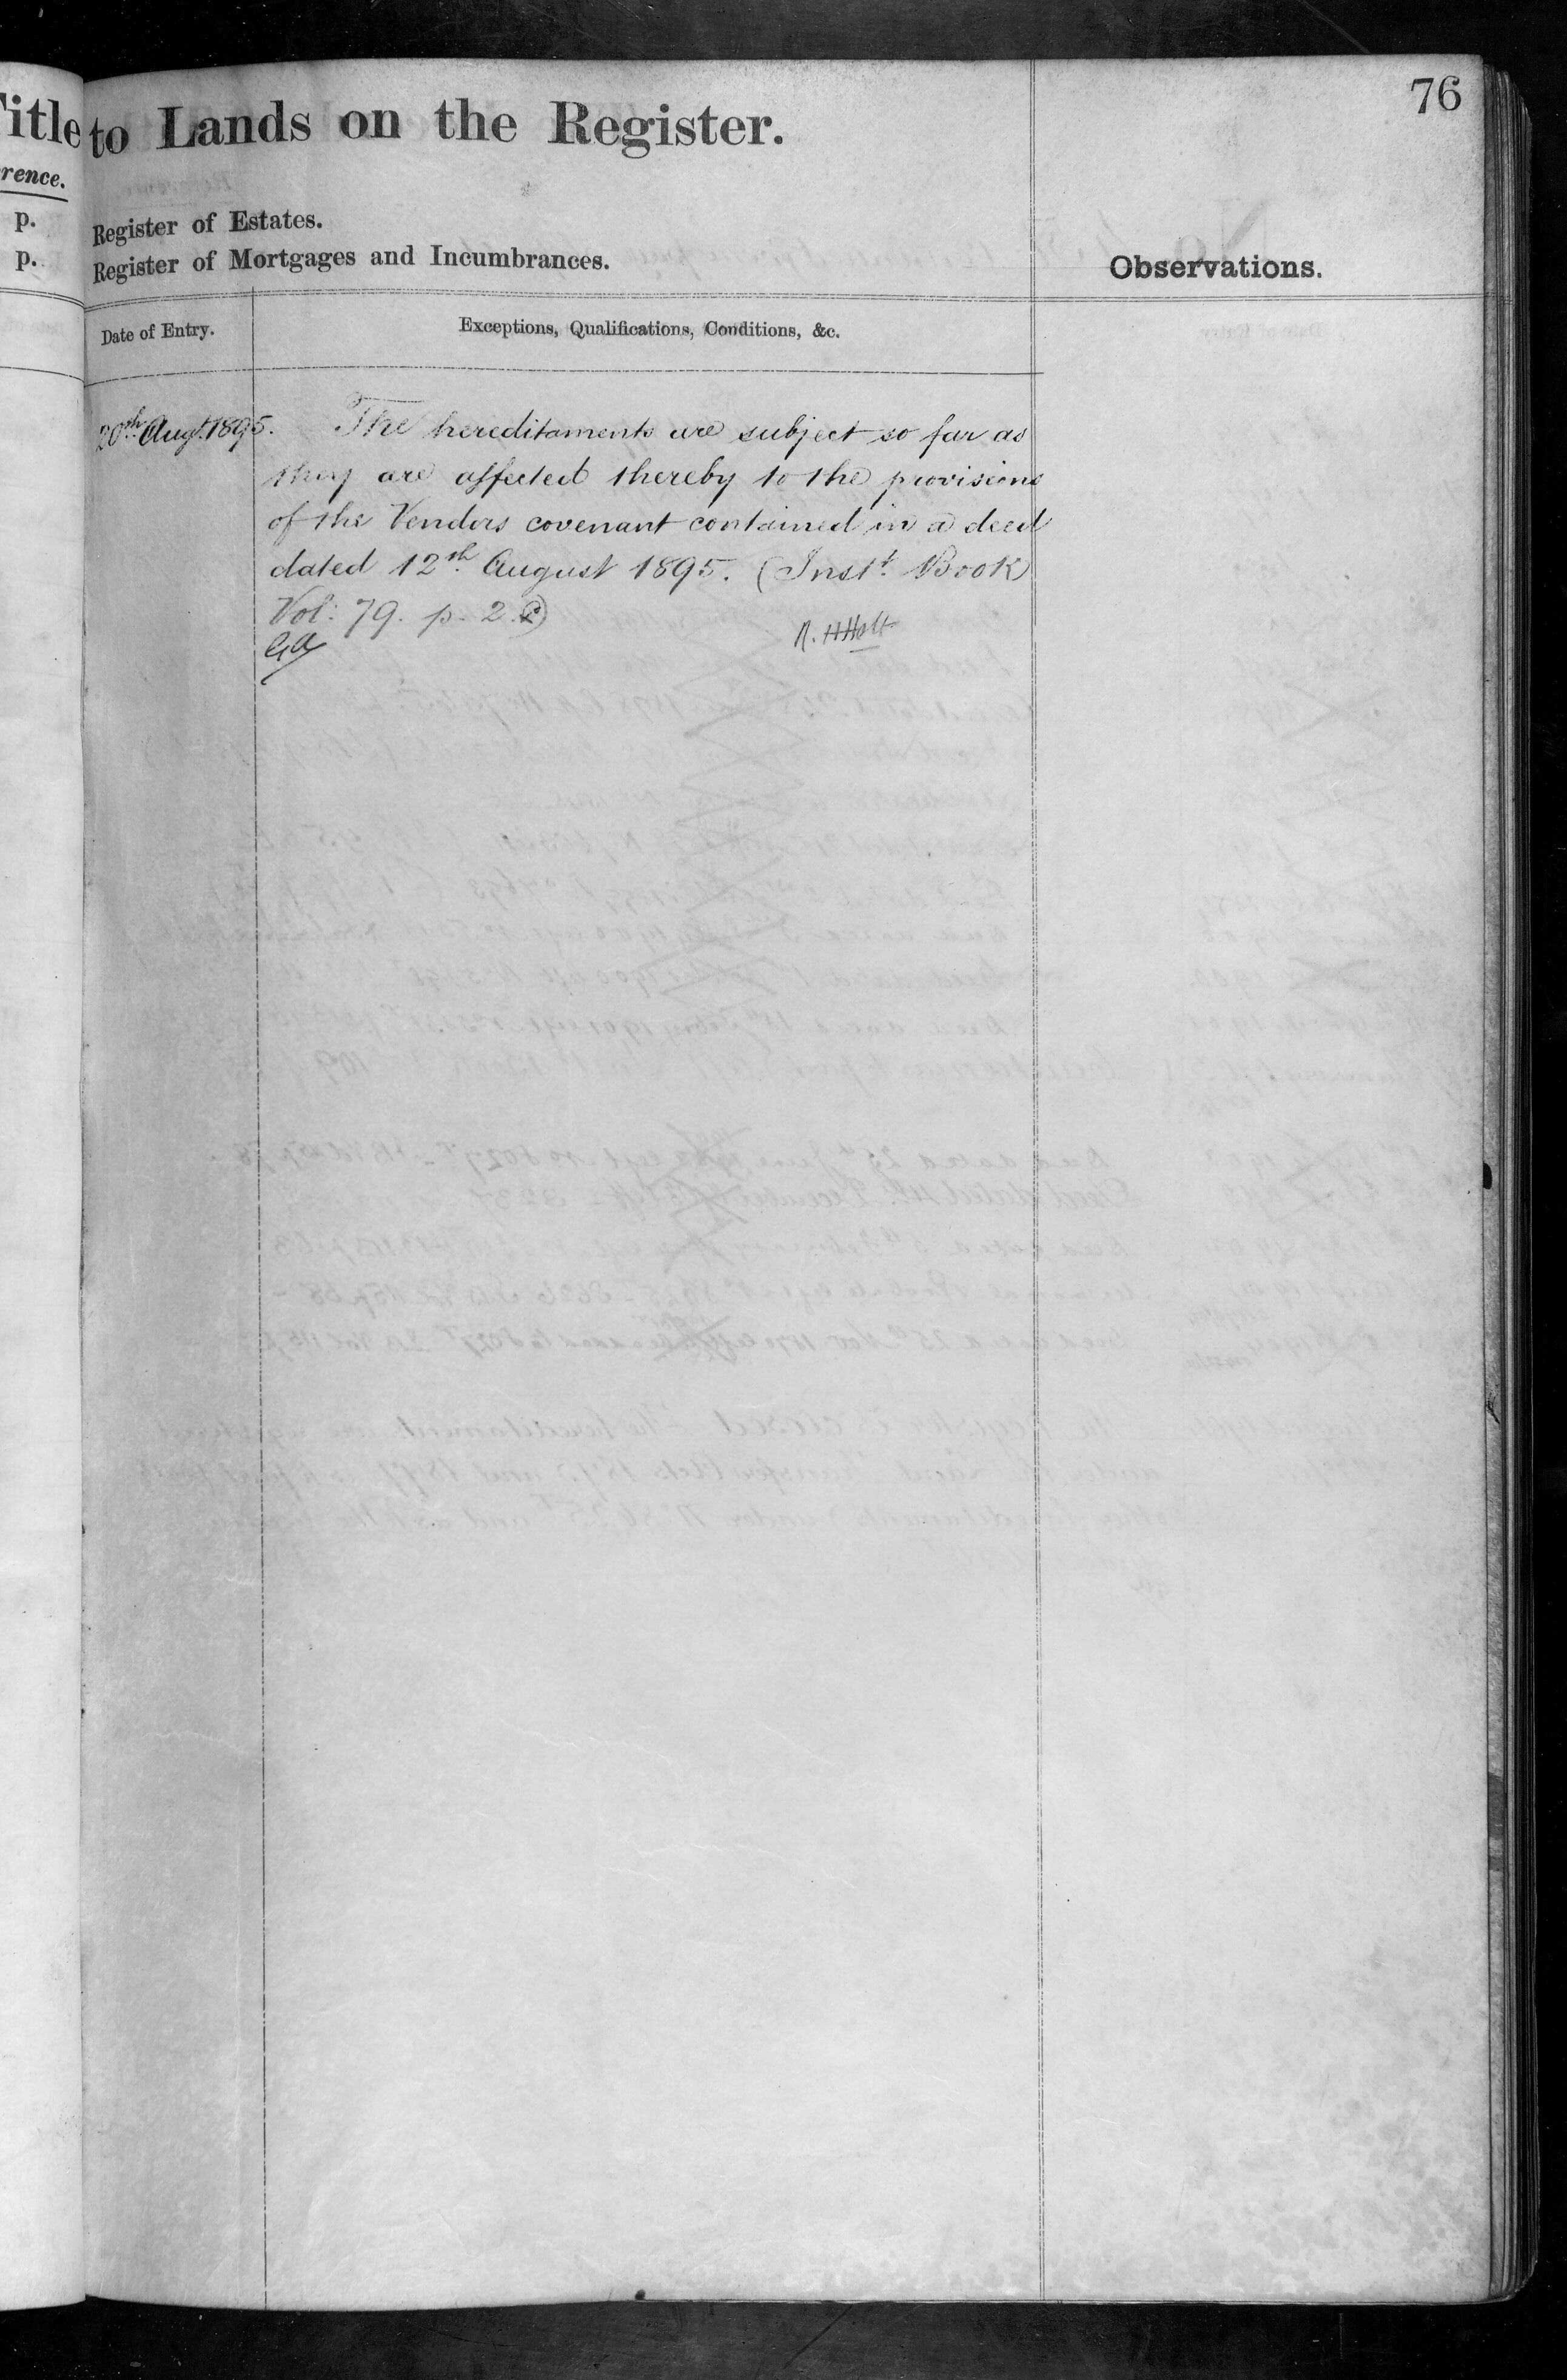 76
Title to Lands on the Register.
rence.
p. Register of Estates.
p. Register of Mortgages and Incumbrances.
Observations.
Date of Entry.
Exceptions, Qualifications, Conditions, &c.
20th Augt. 1895. The hereditaments are subject so far as
they are affected thereby to the provisions
of the Vendors covenant contained in a deed
dated 12th August 1895. (Inst. Book
Vol: 79. p. 2.
R. H Holt